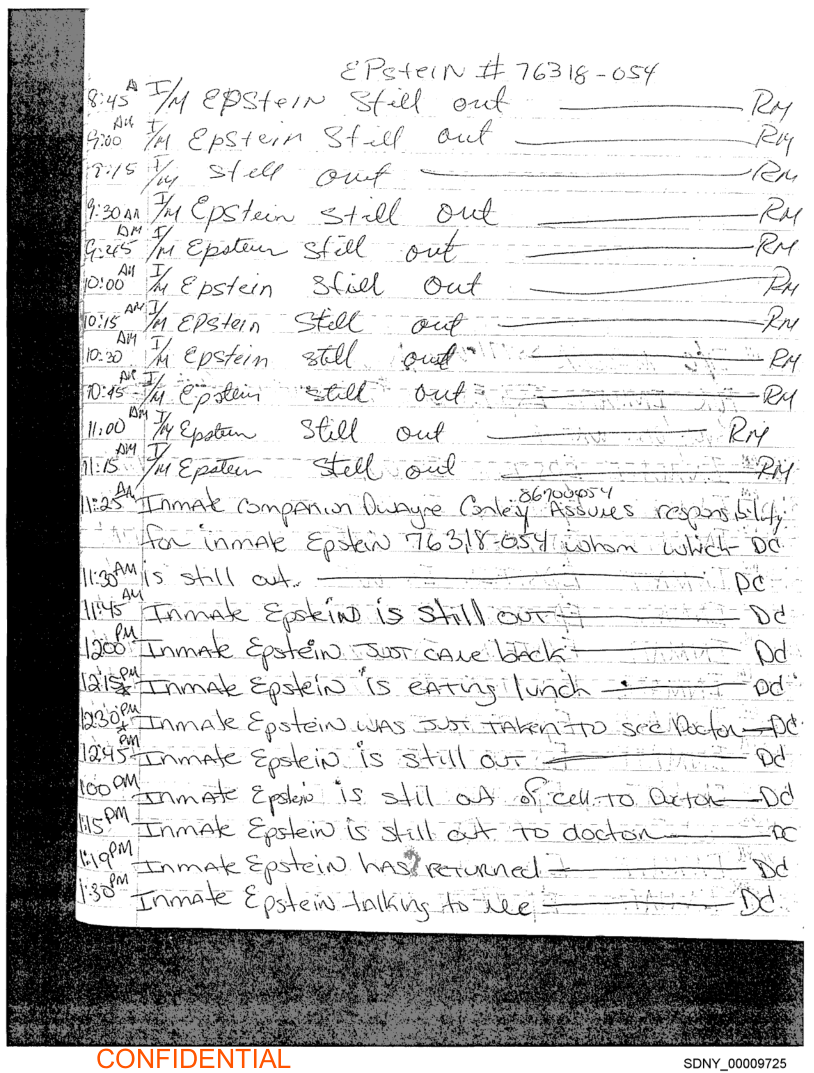 EPsteiN # 76318-054
8:45 A I/M EPStein Still out RM
9:00 AM I/M Epstein Still out RM
9:15 I/M still out RM
9:30 AM I/M Epstein still out RM
9:45 AM I/M Epstein still out RM
10:00 AM I/M Epstein still out RM
10:15 AM I/M EPstein Still out RM
10:30 AM I/M Epstein still out RM
10:45 AM I/M Epstein still out RM
11:00 AM I/M Epstein Still out RM
11:15 AM I/M Epstein Still out RM
86700054
11:25 AM Inmate Companion Dwayne Conley Assumes responsibility
for inmate Epstein 76318-054 whom which DC
11:30 AM is still out. DC
11:45 AM Inmate Epstein is still out DC
12:00 PM Inmate Epstein JUST came back DC
12:15 PM * Inmate Epstein is eating lunch DC
12:30 PM * Inmate Epstein was JUST TAKEN TO see Doctor DC
12:45 PM Inmate Epstein is still out DC
1:00 PM Inmate Epstein is still out of cell to Doctor DC
1:15 PM Inmate Epstein is still out to doctor DC
1:19 PM Inmate Epstein has returned DC
1:30 PM Inmate Epstein talking to me DC
CONFIDENTIAL
SDNY_00009725